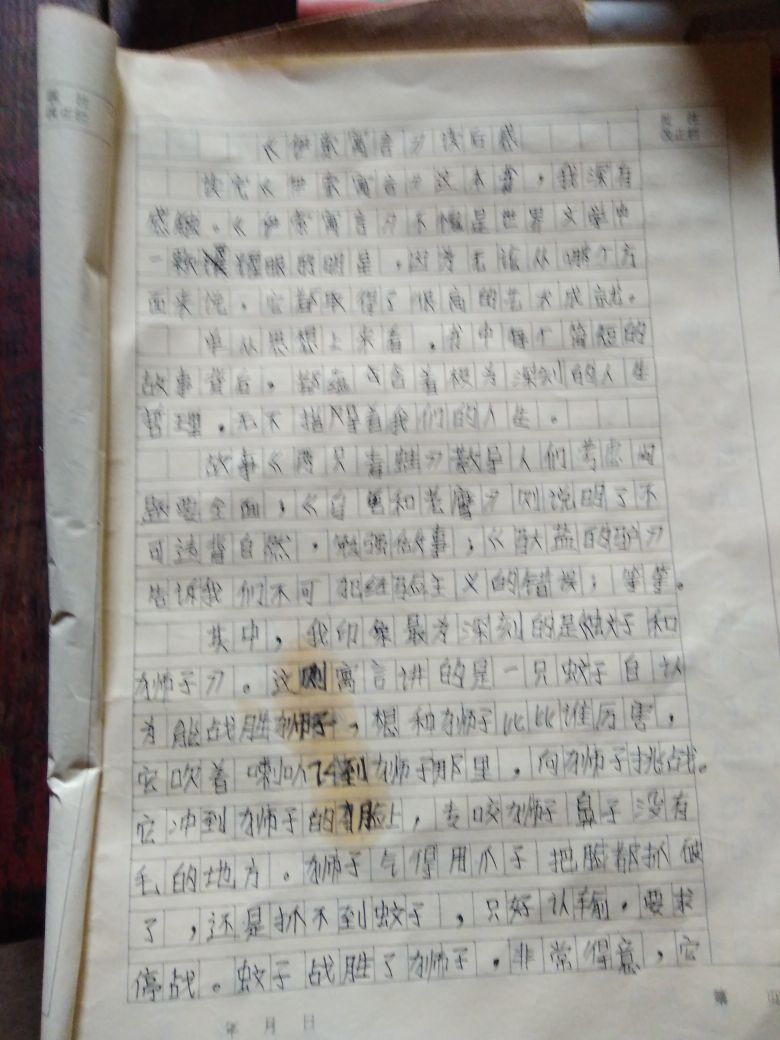 批注
改正栏
批注
改正栏
《伊索寓言》读后感
读完《伊索寓言》这本书，我深有
感触。《伊索寓言》不愧是世界文学中
一颗耀眼的明星，因为无论从哪个方
面来说，它都取得了很高的艺术成就。
单从思想上来看，书中每个简短的
故事背后，都蕴含着极为深刻的人生
哲理，无不指导着我们的人生。
故事《两只青蛙》教导人们考虑问
题要全面；《自然和》则说明了不
可违背自然，勉强做事；《驮盐的驴》
告诉我们不可犯经验主义的错误；等等。
其中，我印象最为深刻的是《蚊子和
狮子》。这则寓言讲的是一只蚊子自认
为能战胜狮子，想和狮子比比谁厉害，
它吹着喇叭飞到狮子那里，向狮子挑战。
它冲到狮子的脸上，专咬狮子鼻子没有
毛的地方。狮子气得用爪子把脸都抓破
了，还是抓不到蚊子，只好认输，要求
停战。蚊子战胜了狮子，非常得意，它
年 月 日
第 页